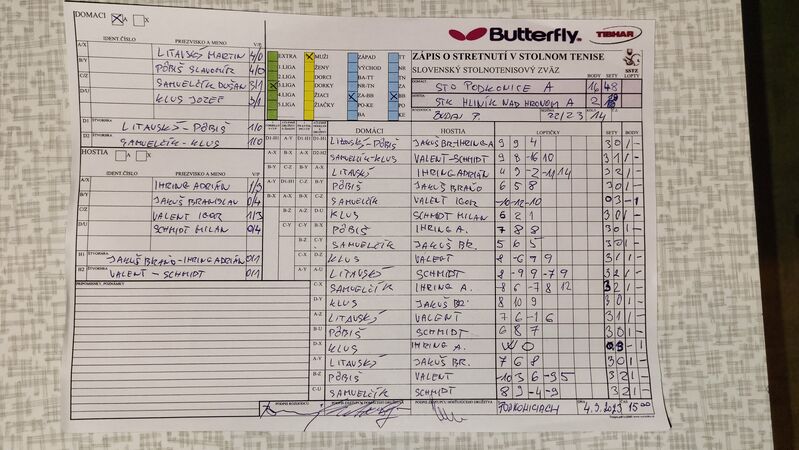 DOMACI A X
Butterfly. TIBHAR
IDENT.ČÍSLO PRIEZVISKO A MENO V/P
A/X LITAVSKÝ MARTIN 4/0
B/Y PÔBIŠ SLAVOMÍR 4/0
C/Z SAMUELČÍK DUŠAN 3/1
KLUS JOZEF 3/1
D1 ŠTVORHRA LITAVSKÝ - PÔBIŠ 1/0
D2 SAMUELČÍK - KLUS 1/0
EXTRA MUŽI ZÁPAD TT
1.LIGA ŽENY VÝCHOD NR
2.LIGA DORCI BA-TT TN
3.LIGA DORKY ZA-BB BB
4.LIGA ŽIACI
5.LIGA ŽIAČKY PO-KE KE
BA
ZÁPIS O STRETNUTÍ V STOLNOM TENISE
SLOVENSKÝ STOLNOTENISOVÝ ZVÄZ
SSTZ
BODY SETY LOPTY
DOMÁCI STO PODKONICE A 16 48
HOSTIA STK HLINÍK NAD HRONOM A 2
ROZHODCA BUDAJ P. 22/23 14
HOSTIA A X
A/X IHRING ADRIÁN 1/3
B/Y JAKUŠ BRANISLAV 0/4
VALENT IGOR 1/3
SCHMIDT MILAN 0/4
H1 ŠTVORHRA JAKUŠ BRAŇO - IHRING ADRIÁN 0/1
H2 ŠTVORHRA VALENT - SCHMIDT 0/1
PRIPOMIENKY, POZNÁMKY
DOMÁCI HOSTIA LOPTIČKY SETY BODY
LITAVSKÝ-PÔBIŠ JAKUŠ BR-IHRING A. 9 9 4 3 0 1 -
SAMUELČÍK-KLUS VALENT-SCHMIDT 9 8 -16 10 3 1 1 -
LITAVSKÝ IHRING ADRIÁN 4 9 -2 -11 14 3 2 1 -
PÔBIŠ JAKUŠ BRAŇO 6 5 8 3 0 1 -
SAMUELČÍK VALENT IGOR -10 -12 -10 0 3 - 1
KLUS SCHMIDT MILAN 6 2 1 3 0 1 -
PÔBIŠ IHRING A. 7 8 8 3 0 1 -
SAMUELČÍK JAKUŠ BR. 5 6 5 3 0 1 -
KLUS VALENT 8 -6 7 9 3 1 1 -
LITAVSKÝ SCHMIDT 8 -9 9 -7 9 3 2 1 -
C-X SAMUELČÍK IHRING A. -8 6 -7 8 12 3 2 1 -
D-Y KLUS JAKUŠ BR. 8 10 9 3 0 1 -
A-Z LITAVSKÝ VALENT 7 6 -1 6 3 1 1 -
B-U PÔBIŠ SCHMIDT 6 8 7 3 0 1 -
D-X KLUS IHRING A. W O 0 3 - 1
A-Y LITAVSKÝ JAKUŠ BR. 7 6 8 3 0 1 -
B-Z PÔBIŠ VALENT -10 3 6 -9 5 3 2 1 -
C-U SAMUELČÍK SCHMIDT 8 9 -4 -9 3 2 1 -
PODPIS ROZHODCU PODPIS ZÁSTUPCU DOMÁCEHO DRUŽSTVA PODPIS ZÁSTUPCU HOSŤUJÚCEHO DRUŽSTVA PODKONICIACH DŇA 4.3.2023 15 00